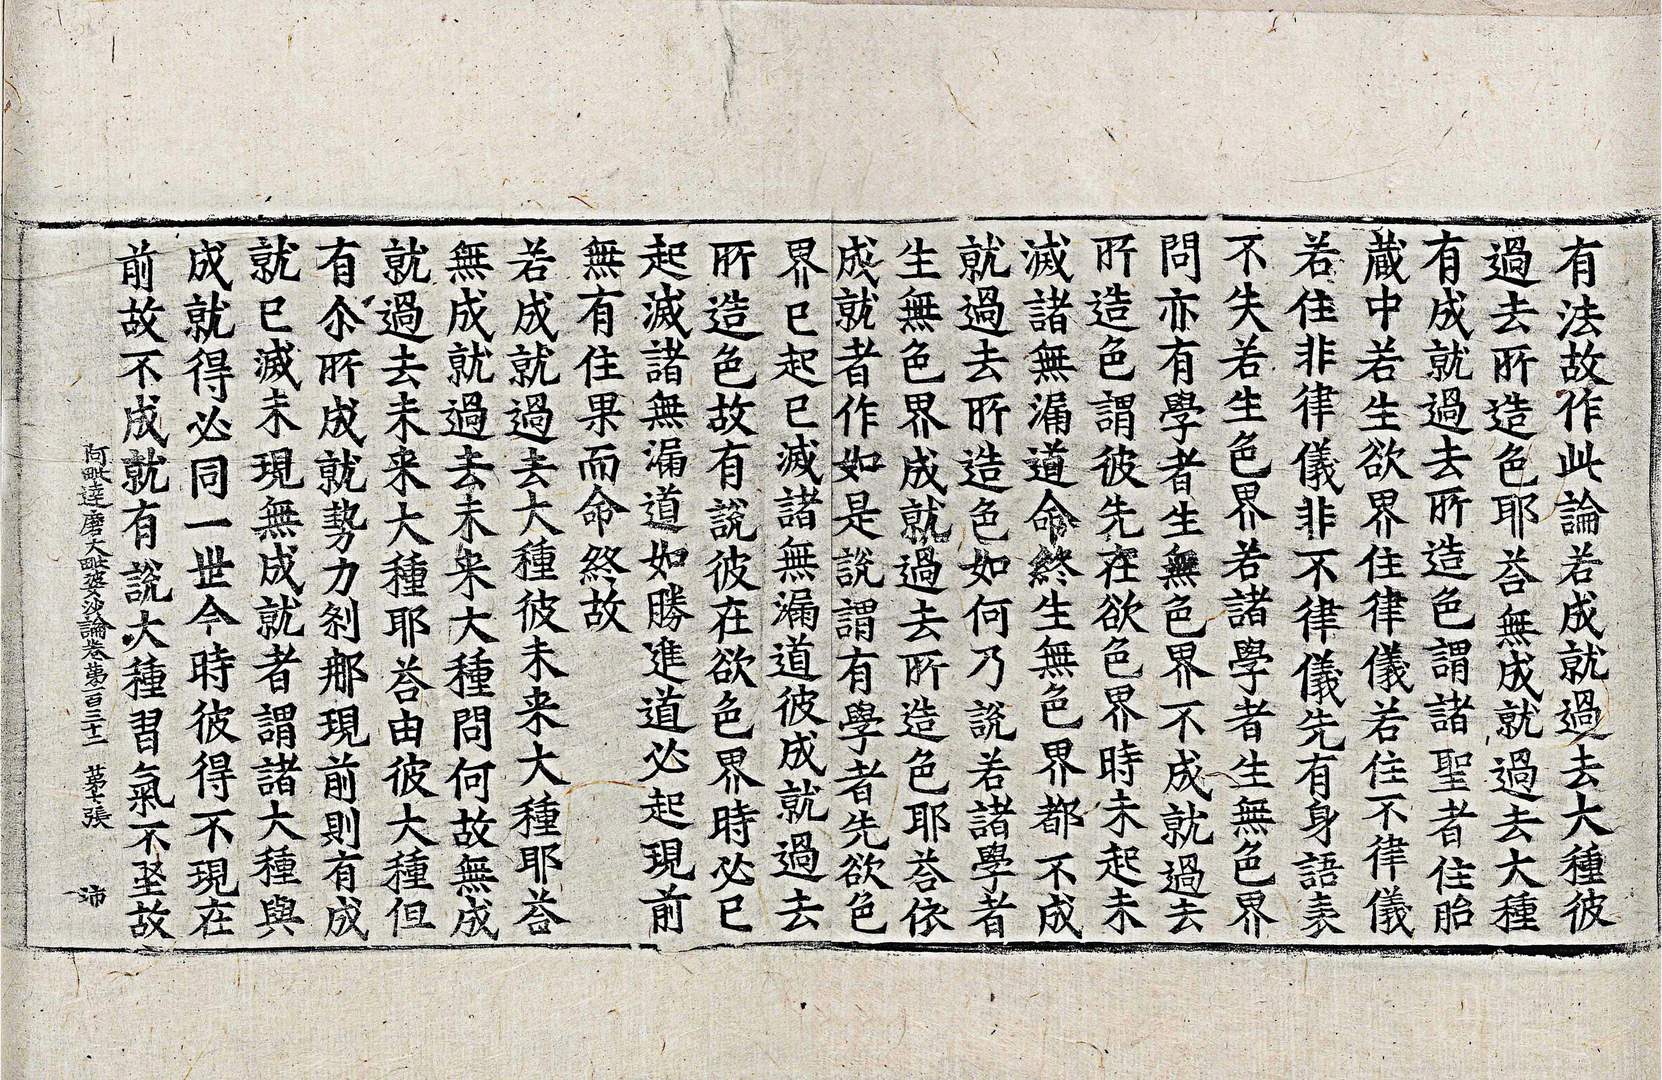 有法故作此論若成就過去大種彼
過去所造色耶荅無成就過去大種
有成就過去所造色謂諸聖者住胎
藏中若生欲界住律儀若住不律儀
若住非律儀非不律儀先有身語表
不失若生色界若諸學者生無色界
問亦有學者生無色界不成就過去
所造色謂彼先在欲色界時未起未
滅諸無漏道命終生無色界都不成
就過去所造色如何乃說若諸學者
生無色界成就過去所造色耶荅依
成就者作如是說謂有學者先欲色
界已起已滅諸無漏道彼成就過去
所造色故有說彼在欲色界時必已
起滅諸無漏道如勝進道必起現前
無有住果而命終故
若成就過去大種彼未来大種耶荅
無成就過去未来大種問何故無成
就過去未来大種耶荅由彼大種但
有尒所成就勢力剎那現前則有成
就已滅未現無成就者謂諸大種與
成就得必同一世今時彼得不現在
前故不成就有說大種習氣不堅故
阿毗達磨大毗婆沙論卷第一百三十二　第七張　沛